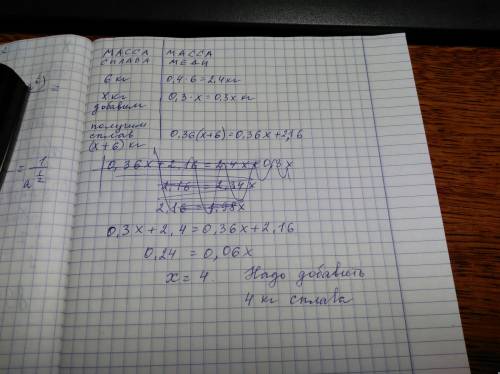 МАССА СПЛАВА | МАССА МЕДИ
6 кг | 0,4·6=2,4кг
x кг добавим | 0,3·x=0,3x кг
получим сплав (x+6) кг | 0,36(x+6)=0,36x+2,16
2,16 = 2,34x
0,3x+2,4=0,36x+2,16
0,24 = 0,06x
x = 4
Надо добавить
4 кг сплава